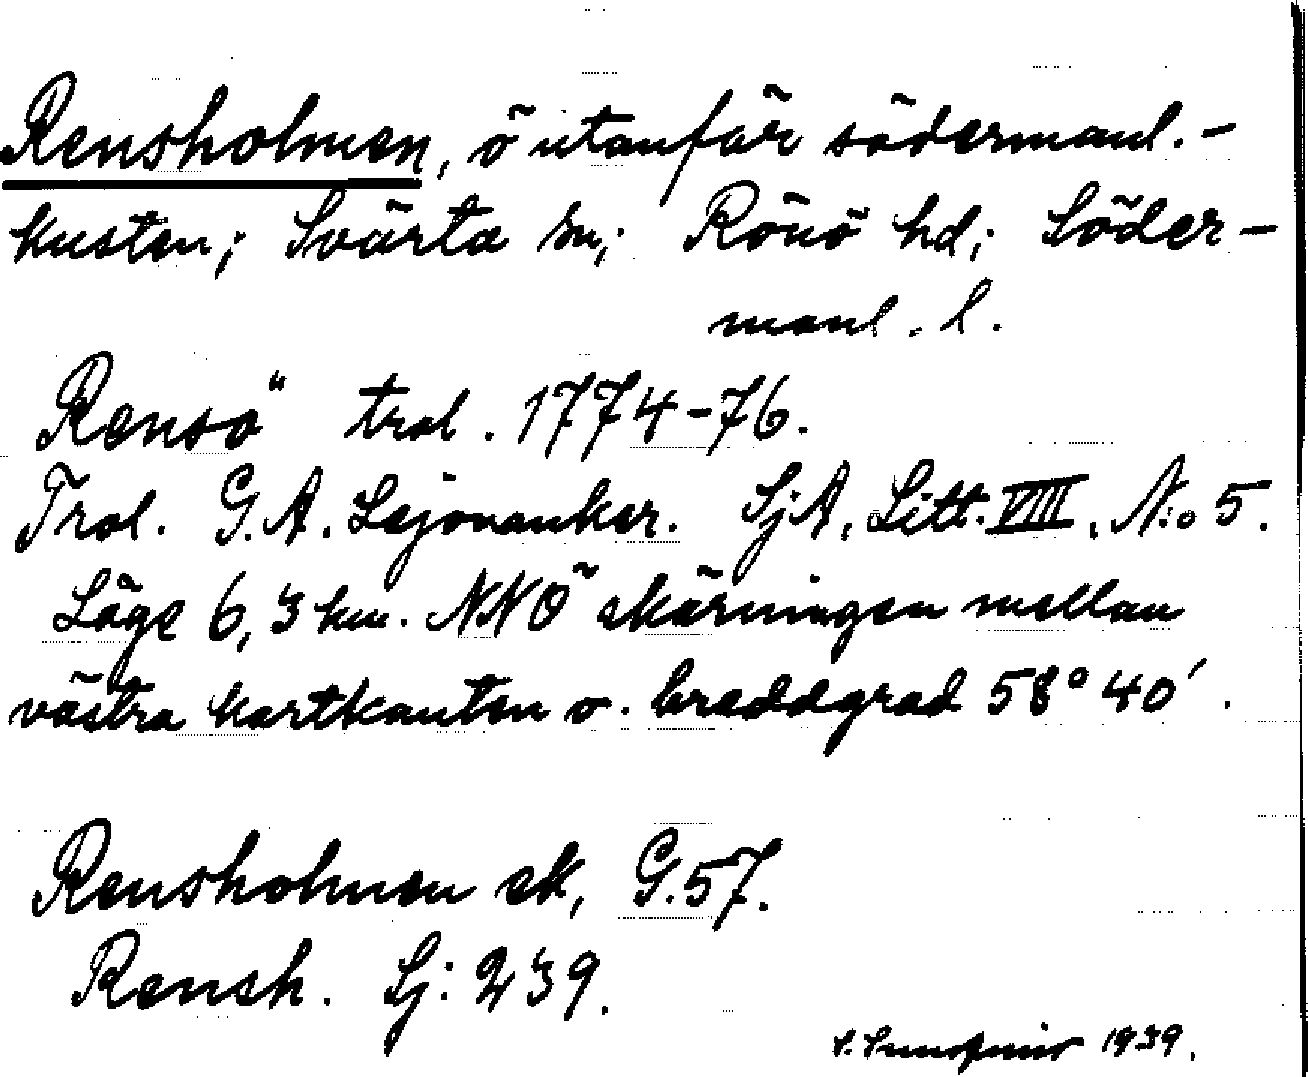 Rensholmen, ö utanför södermanl.-
kusten; Svärta sn; Rönö hd; Söder-
manl. l.
Rensö" trol. 1774-76.
Trol. G. A. Lejonanker. SjA, Litt. VIII, N:o 5.
Läge 6,3 km. NNÖ skärningen mellan
västra kartkanten o. breddgrad 58° 40'.
Rensholmen ek, G.57.
Rensh. Sj: 239.
1939.